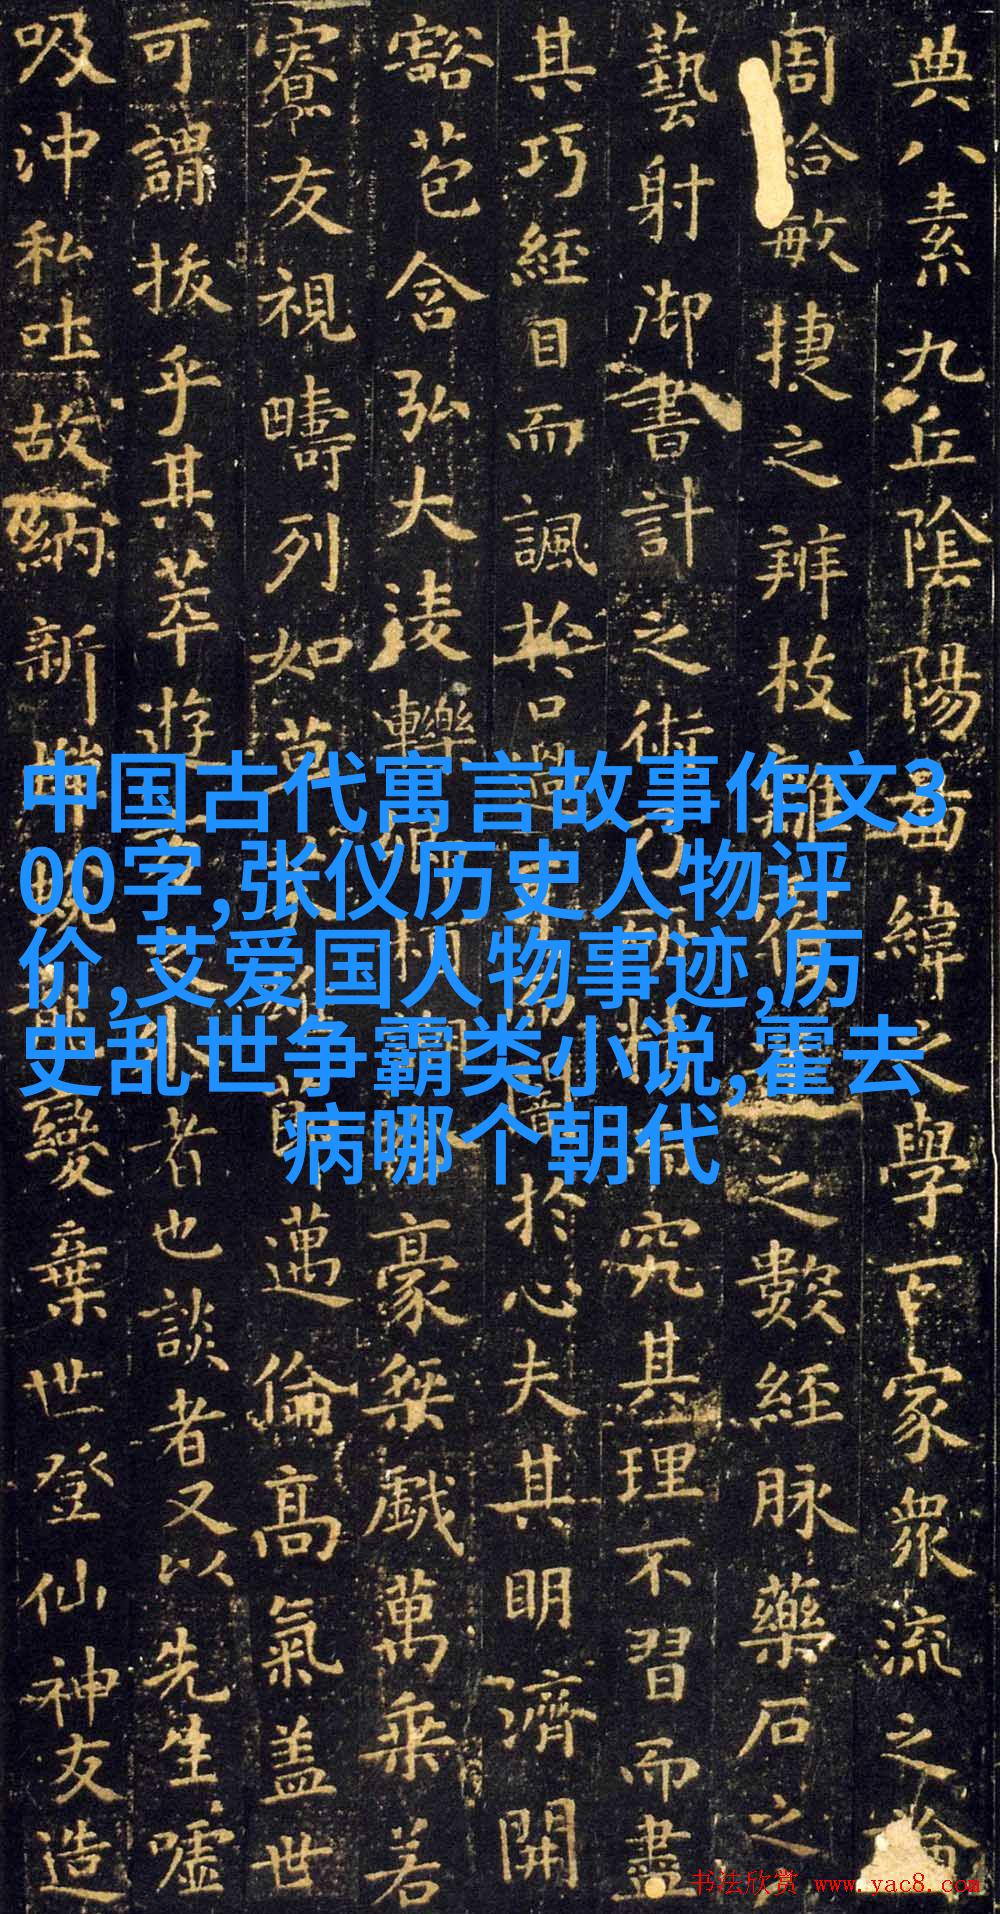 典八素九丘陰陽圖緯之學百家衆流之論
周給敏捷之辨枝離之數經脉藥石之
藝射御書計之術乃究其理不習而盡
其巧經目而諷於口過於心夫其明濟開
豁苞含弘大淩轢豪桀戲萬乘若
寮友視疇列如草邁倫高氣蓋世
可謂拔乎其萃遊者也談者又以先生噓
吸沖和吐故納新變棄世登仙神友造
中国古代寓言故事作文3
00字,张仪历史人物评
价,艾爱国人物事迹,历
史乱世争霸类小说,霍去
病哪个朝代
书法欣赏 www.yac8.com